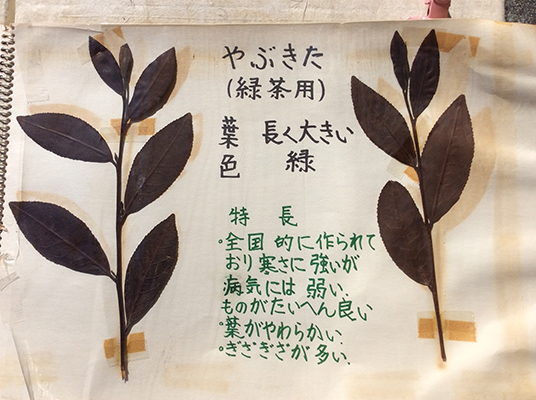 やぶきた
(緑茶用)
葉 長く大きい
色 緑
特長
・全国的に作られて
おり寒さに強いが
病気には弱い.
ものがたいへん良い
・葉がやわらかい.
・ぎざぎざが多い.